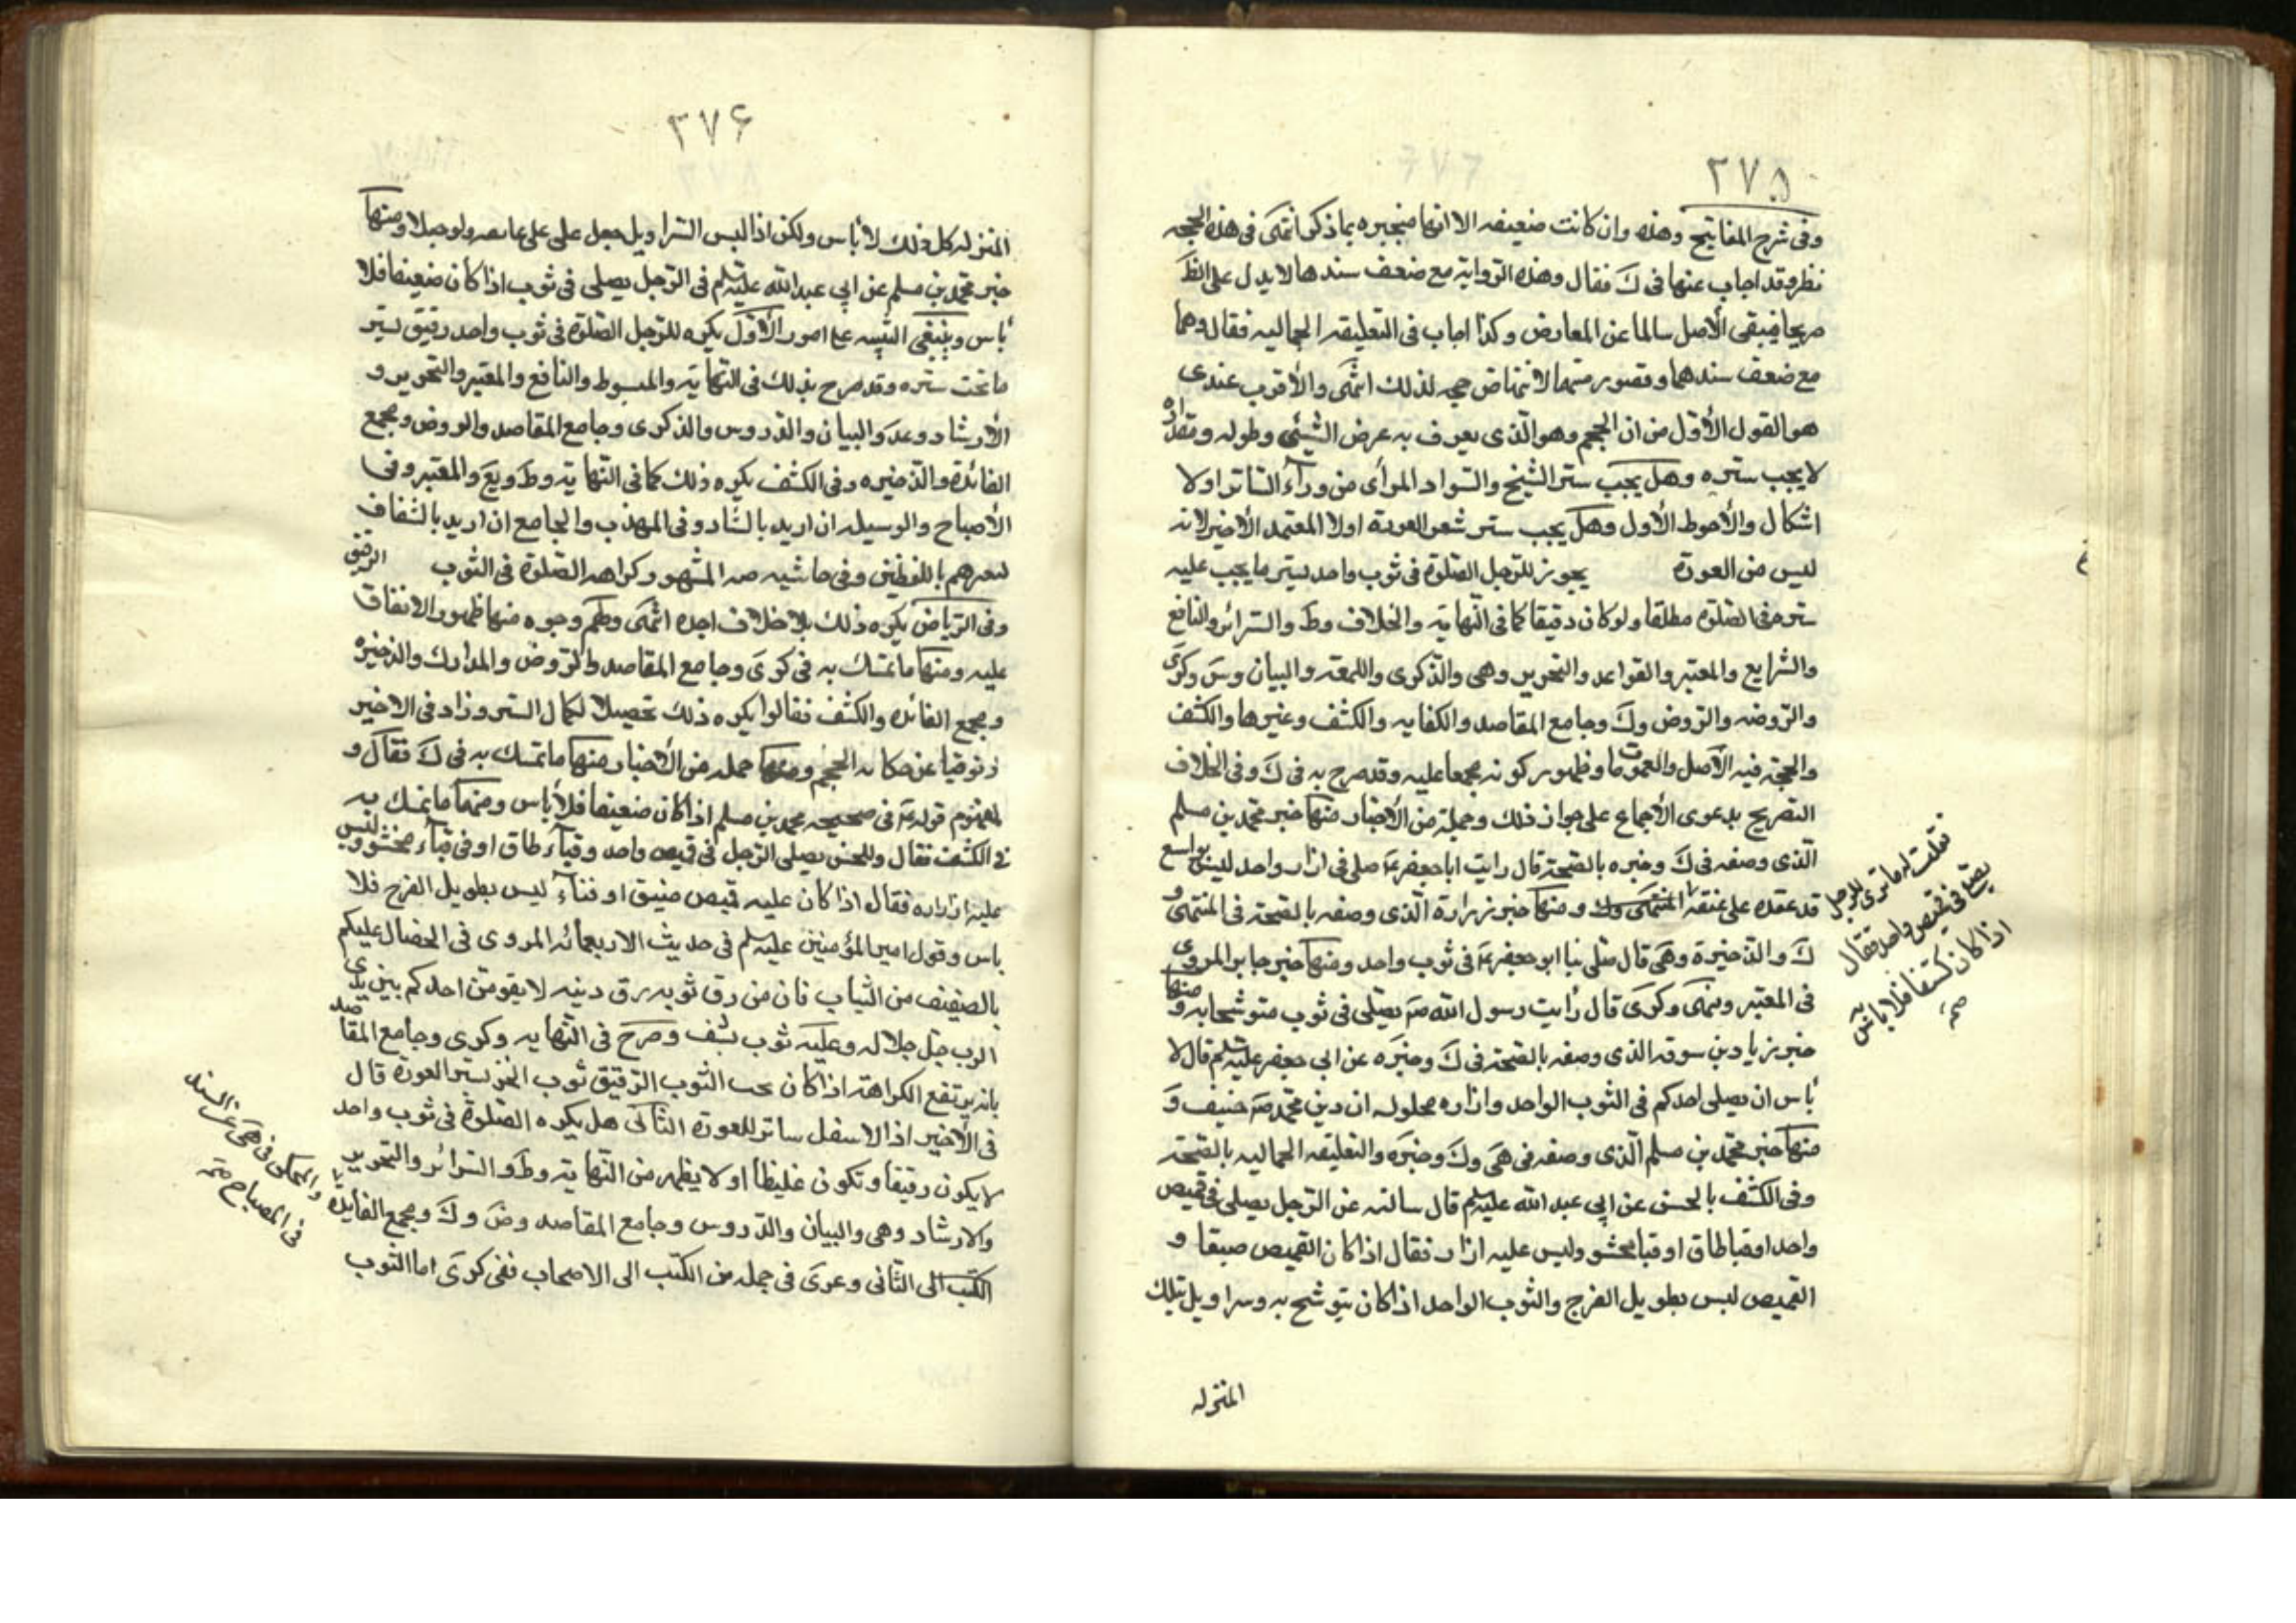 ٣٧٥
وفى شرح المفاتيح وهذه وان كانت ضعيفه الا انها منجبره بما ذكر انتهى فى هذه الحجه
نظر وقد اجاب عنها فى ك فقال وهذه الرواية مع ضعف سندها لا يدل على
صريحا فيبقى الأصل سالما عن المعارض وكذا اجاب فى التعليقه الجماليه فقال وهما
مع ضعف سندهما وقصور متنهما لا تنتهاض حجه لذلك انتهى والأقرب عندى
هو القول الأول من ان الحجم وهو الذى يعرف به عرض الشيئ وطوله ومقداره
لا يجب ستره وهل يجب ستر الشبح والسواد المرأى من ورآء الساتر اولا
اشكال والأحوط الأول وهل يجب ستر شعر العورة اولا المعتمد الأخير لانه
ليس من العورة يجوز للرجل الصلوة فى ثوب واحد يستر ما يجب عليه
ستره فى الصلوة مطلقا ولو كان رقيقا كما فى النهاية والخلاف وط والسرائر والنافع
والشرايع والمعتبر والقواعد والتحرير وهى والذكرى واللمعه والبيان وس وكرى
والروضه والروض وك وجامع المقاصد والكفايه والكشف وغيرها والكشف
والحجة فيه الأصل والعمومات وظهور كونه مجمعا عليه وقد صرح به فى ك وفى الخلاف
التصريح بدعوى الأجماع على جواز ذلك وجملة من الأخبار منها خبر محمد بن مسلم
الذى وصفه فى ك وخيره بالصحة قال رايت ابا جعفر ع صلى فى ازار واحد ليس بواسع
قد عقده على عنقه ومنها خبر زرارة الذى وصفه بالصحة فى المنتهى و
ك والذخيرة وهى قال صلى بنا ابو جعفر ع فى ثوب واحد ومنها خبر جابر المروى
فى المعتبر وىمى وكرى قال رأيت رسول الله ص يصلى فى ثوب متوشحا به ومنها
خبر زياد بن سوقه الذى وصفه بالصحة فى ك وخيره عن ابى جعفر عليه السلم قال لا
بأس ان يصلى احدكم فى الثوب الواحد وازاره محلوله ان دين محمد ص حنيف و
منها خبر محمد بن مسلم الذى وصفه فى هى وك وخيره والتعليقه الجماليه بالصحة
وفى الكشف بالحسن عن ابى عبد الله عليه السلم قال سالته عن الرجل يصلى فى قميص
واحد او قباطاق او قبا محشو وليس عليه ازار فقال اذا كان القميص صيقا و
القميص ليس بطويل الفرج والثوب الواحد اذا كان يتوشح به وسراويل تلك
المنزله
فقلت له ما ترى للرجل
يصلى فى قميص واحد فقال
اذا كان كثيفا فلا باس به
صح
٣٧۶
المنزله كل ذلك لا بأس ولكن اذا لبس السراويل جعل على على عاتقه ولو حبلا ومنها
خبر محمد بن مسلم عن ابى عبد الله عليه السلم فى الرجل يصلى فى ثوب اذا كان ضعيفا فلا
بأس وينبغى التنبيه على امور الأول يكره للرجل الصلوة فى ثوب واحد رقيق يستر
ما تحت ستره وقد صرح بذلك فى النهاية والمبسوط والنافع والمعتبر والتحرير و
الأرشاد وعد والبيان والدروس والذكرى وجامع المقاصد والروض ومجمع
الفائدة والذخيره وفى الكشف يكره ذلك كما فى النهاية وط ويع والمعتبر وفى
الأصباح والوسيله ان اريد بالشاد وفى المهذب والجامع ان اريد بالشفاف
باللفظين وفى حاشيه المشهور كراهه الصلوة فى الثوب الرقيق
وفى الرياض يكره ذلك بلا خلاف اجده انتهى ولهم وجوه منها ظهور الاتفاق
عليه ومنها ما تمسك به فى كرى وجامع المقاصد والروض والمدارك والذخيره
ومجمع الفائده والكشف فقالوا يكره ذلك تحصيلا لكمال الستر وزاد فى الاخير
وتوقيا عن حكاىه الحجم ومنها جمله من الأخبار منها ما تمسك به فى ك فقال و
لمفهوم قوله ع فى صحيحه محمد بن مسلم اذا كان ضعيفا فلا بأس ومنها ما تمسك به
فى الكشف فقال وللحسن يصلى الرجل فى قميص واحد وقبآء طاق او فى قبآء محشو وليس
عليه ازاره فقال اذا كان عليه قميص صيق او قبآء ليس بطويل الفرج فلا
باس وقول امير المؤمنين عليه السلم فى حديث الاربعمائه المروى فى الخصال عليكم
بالصفيف من الثياب فان من رق ثوبه رق دينه لا يقومن احدكم بين يدى
الرب جل جلاله وعليه ثوب يشف وصرح فى النهايه وكرى وجامع المقاصد
بانه يرتفع الكراهة اذا كان تحت الثوب الرقيق ثوب اخر يستر العورة قال
فى الأخير اذ الاسفل ساتر للعورة الثانى هل يكره الصلوة فى ثوب واحد
لا يكون رقيقا وتكون غليظا او لا يظهر من النهاية وط والسرائر والتحرير
والارشاد وهى والبيان والدروس وجامع المقاصد وض وك ومجمع الفايده
الكتب الى الثانى وعزى فى جمله من الكتب الى الاصحاب ففى كرى اما الثوب
والمحكى فى هى عن السيد
فى المصباح صح